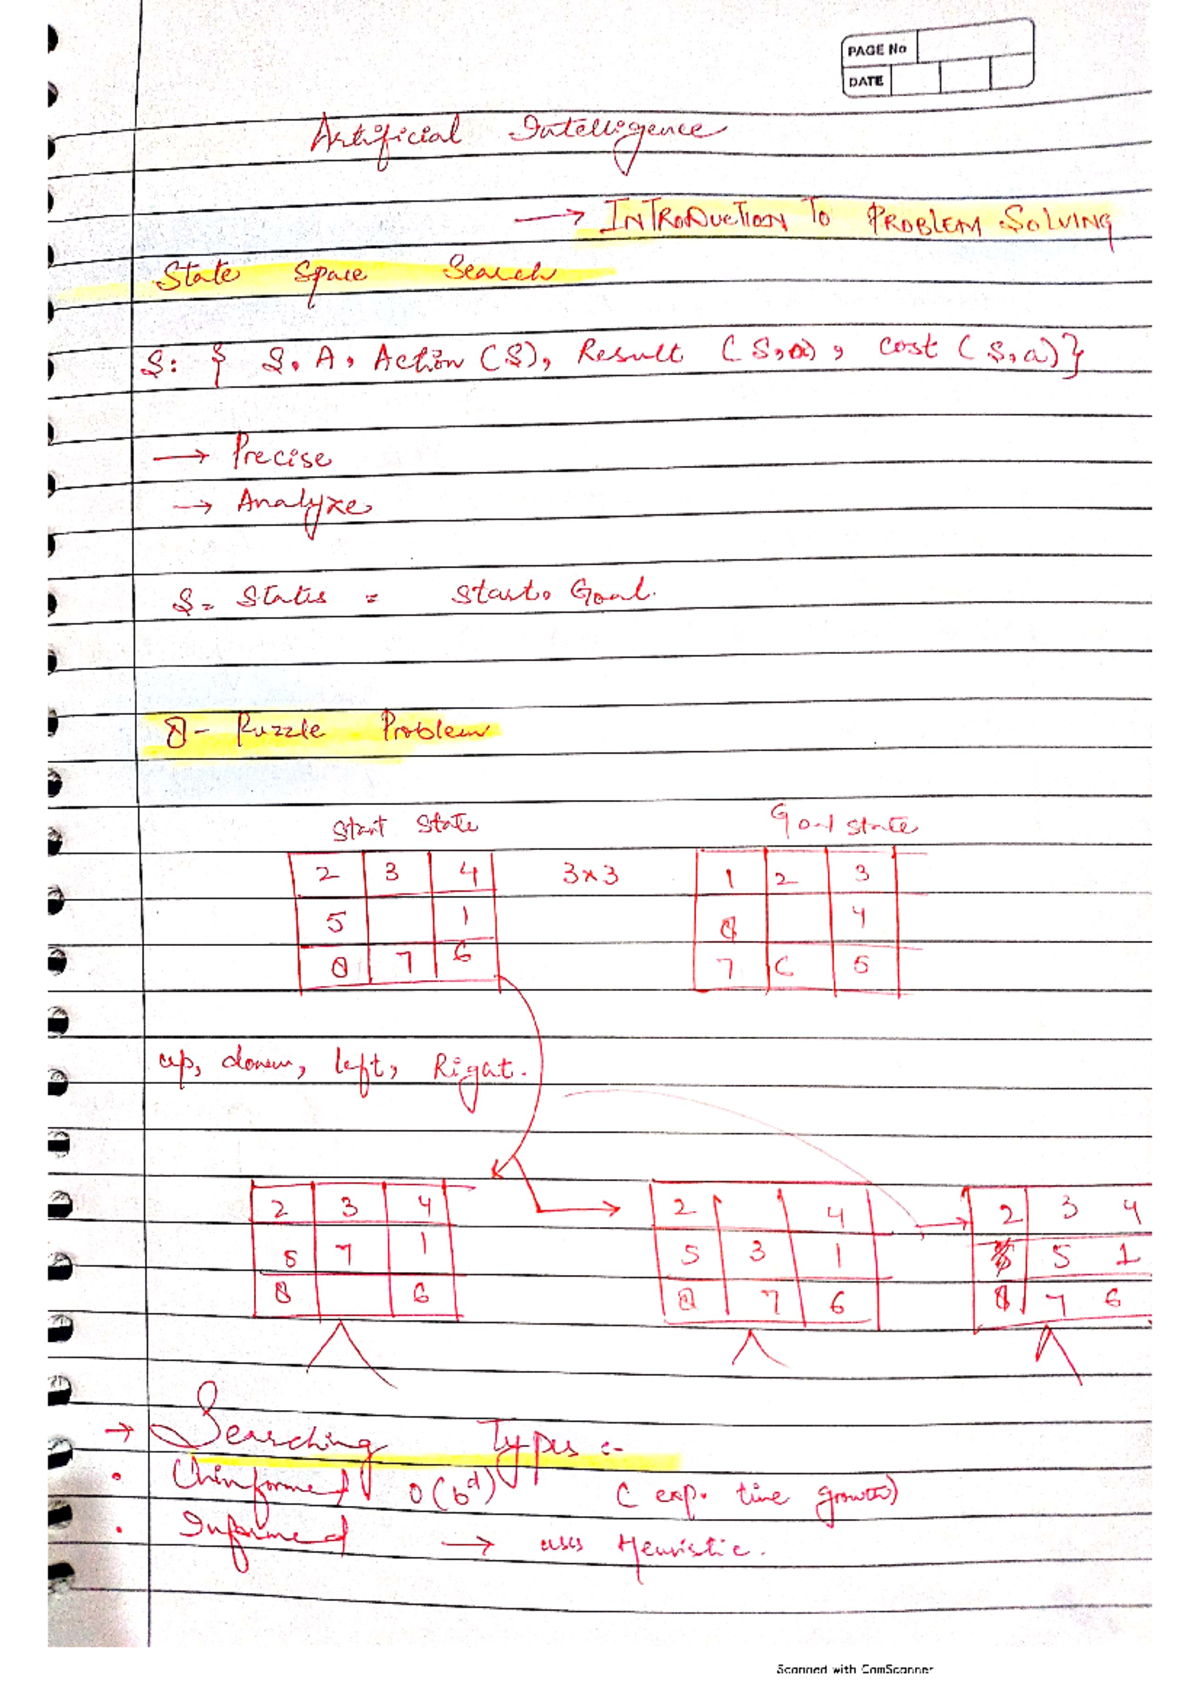 PAGE No
DATE
Artificial Intelligence
→ INTRODUCTION TO PROBLEM SOLVING
State Space Search
S: { S, A, Action (S), Result (S,a), cost (S,a)}
→ Precise
→ Analyze
S = States = Start, Goal.
8- Puzzle Problem
Start State Goal state
2 3 4 3x3 1 2 3
5 1 8 4
8 7 6 7 6 5
up, down, left, Right.
2 3 4 2 4 2 3 4
5 7 1 5 3 1 5 1
8 6 8 7 6 8 7 6
→ Searching Types :-
• Uninformed O(b^d) ( exp. time growth)
• Informed → uses Heuristic.
Scanned with CamScanner